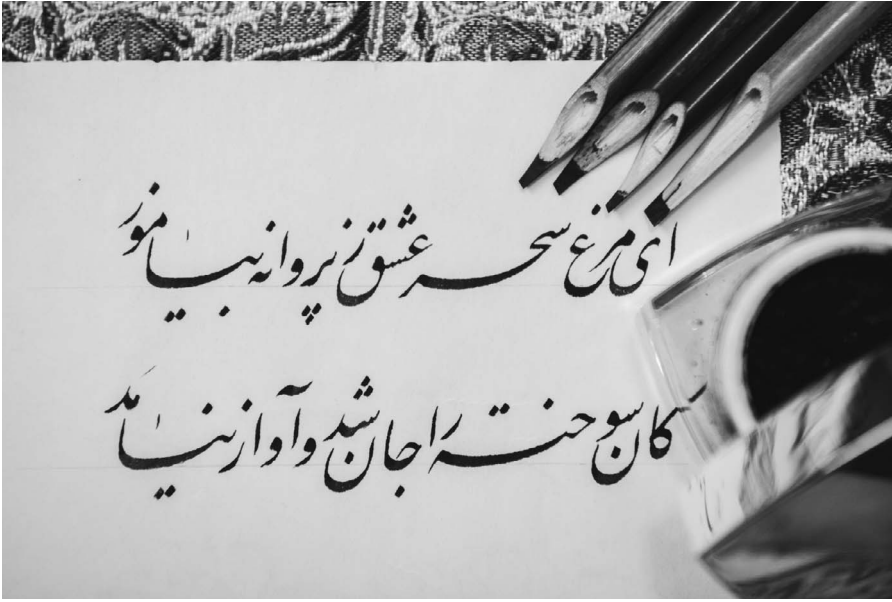 ای مرغ سحر عشق ز پروانه بیاموز
کان سوخته را جان شد و آواز نیامد